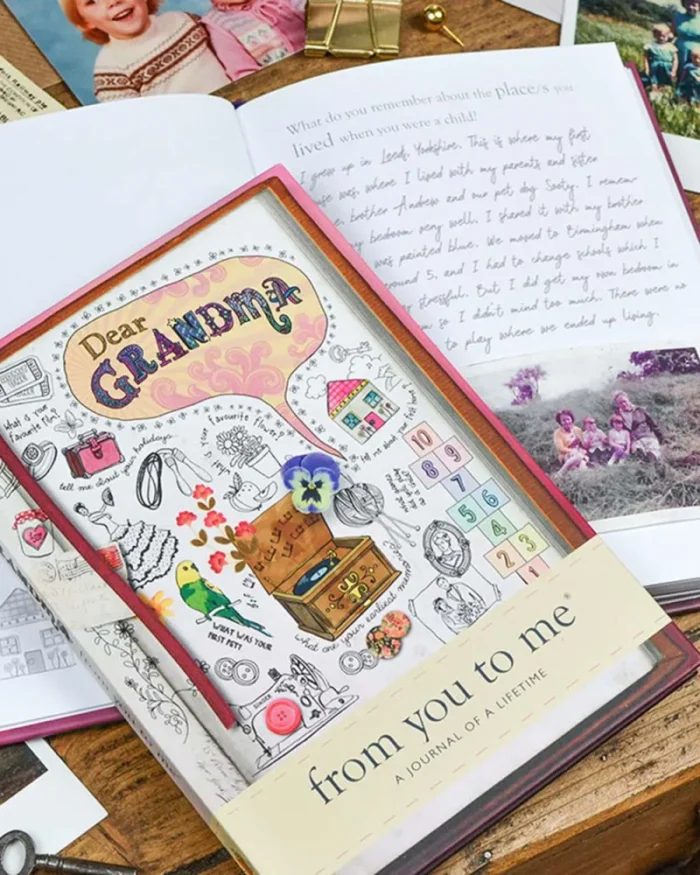 What do you remember about the place/s you
lived when you were a child?
I grew up in Leeds, Yorkshire. This is where my first
was, where I lived with my parents and sister
brother Andrew and our pet dog Sooty. I remem-
bedroom very well. I shared it with my brother
was painted blue. We moved to Birmingham when
5, and I had to change schools which I
stressful. But I did get my own bedroom in
so I didn't mind too much. There were no
to play where we ended up living.
Dear
GRANDMA
what is your
favourite film?
tell me about your holidays
is your favourite flower?
tell me about
10
8 9
7
5 6
4
2 3
1
WHAT WAS YOUR
FIRST PET?
what are your earliest
SINGER
from you to me
A JOURNAL OF A LIFETIME